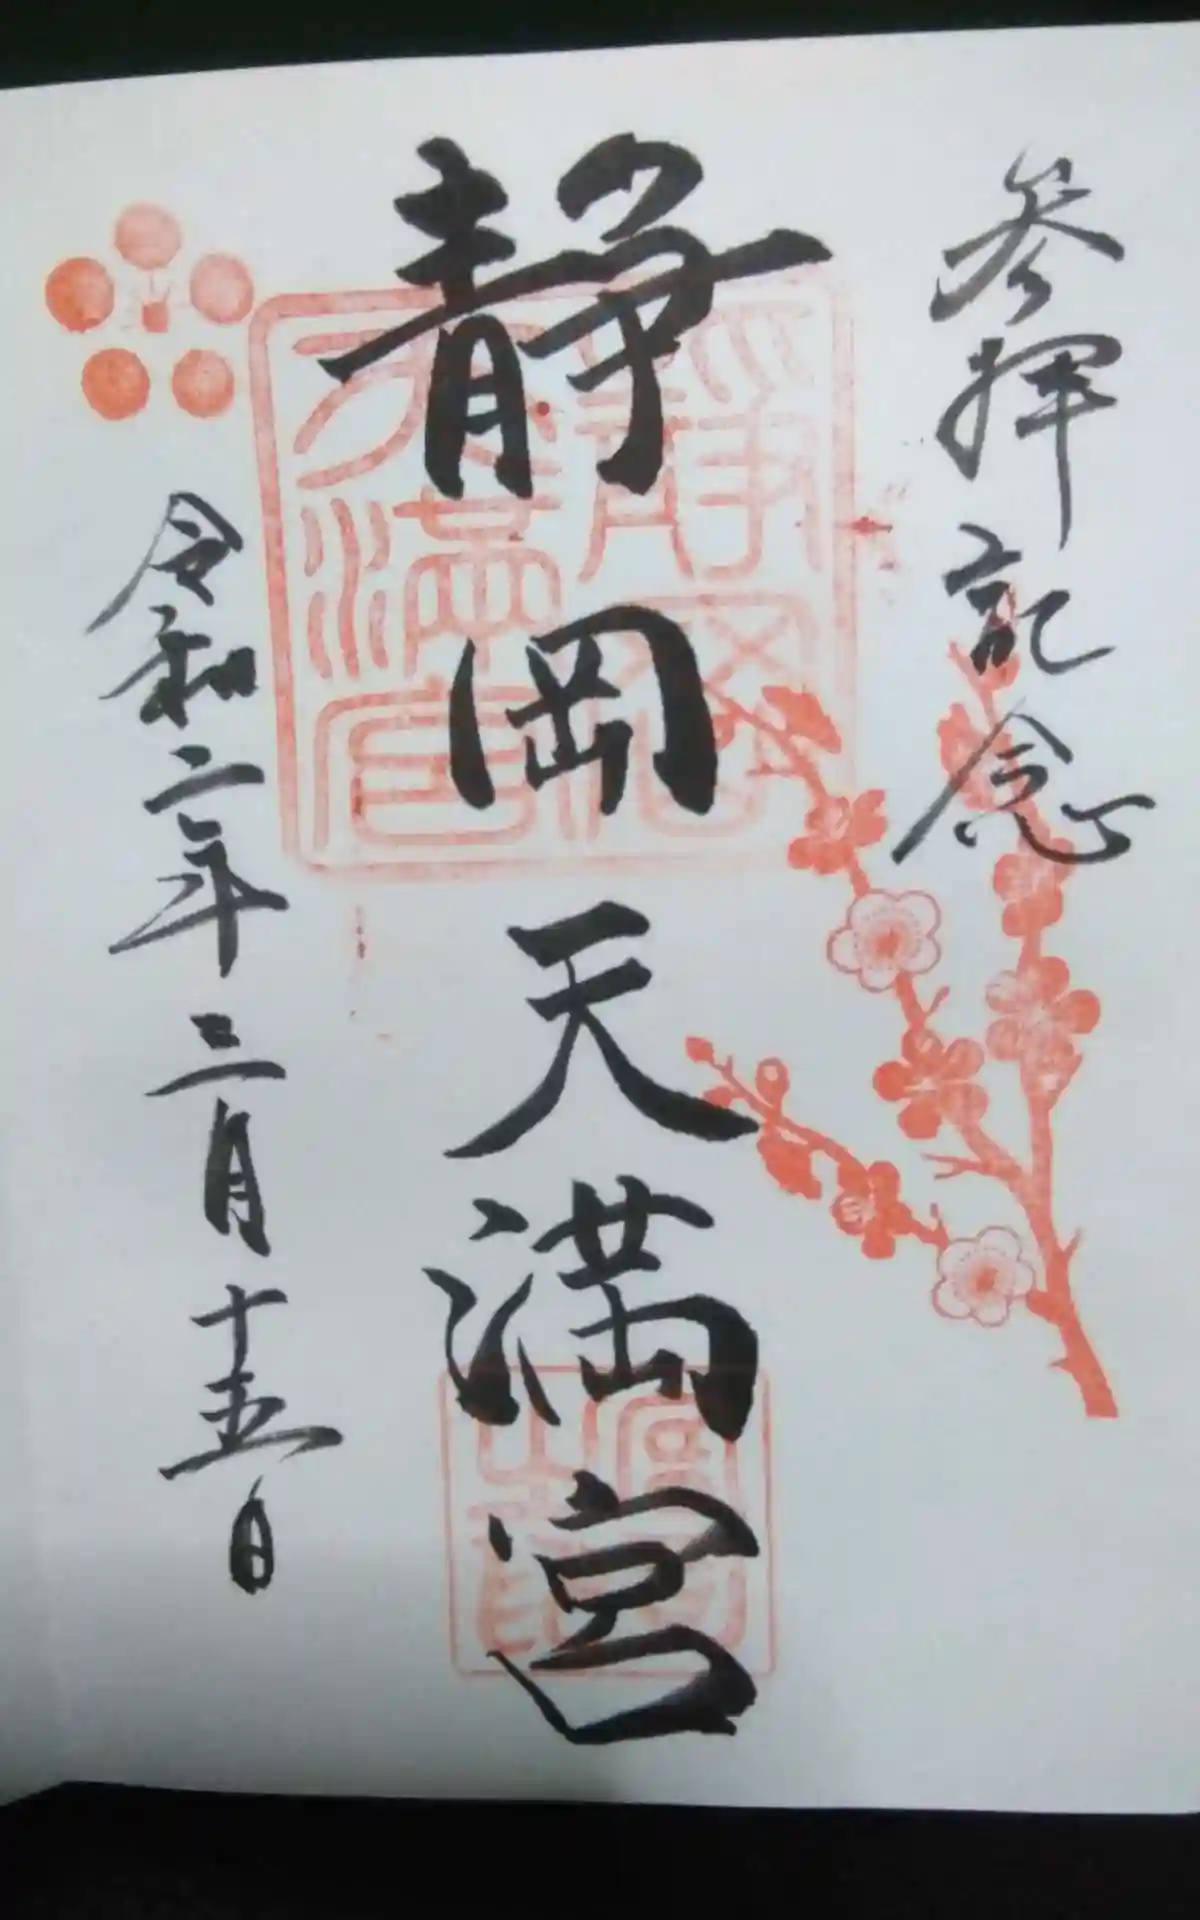 参拝記念
静岡天満宮
令和二年三月十五日
静岡
天満宮